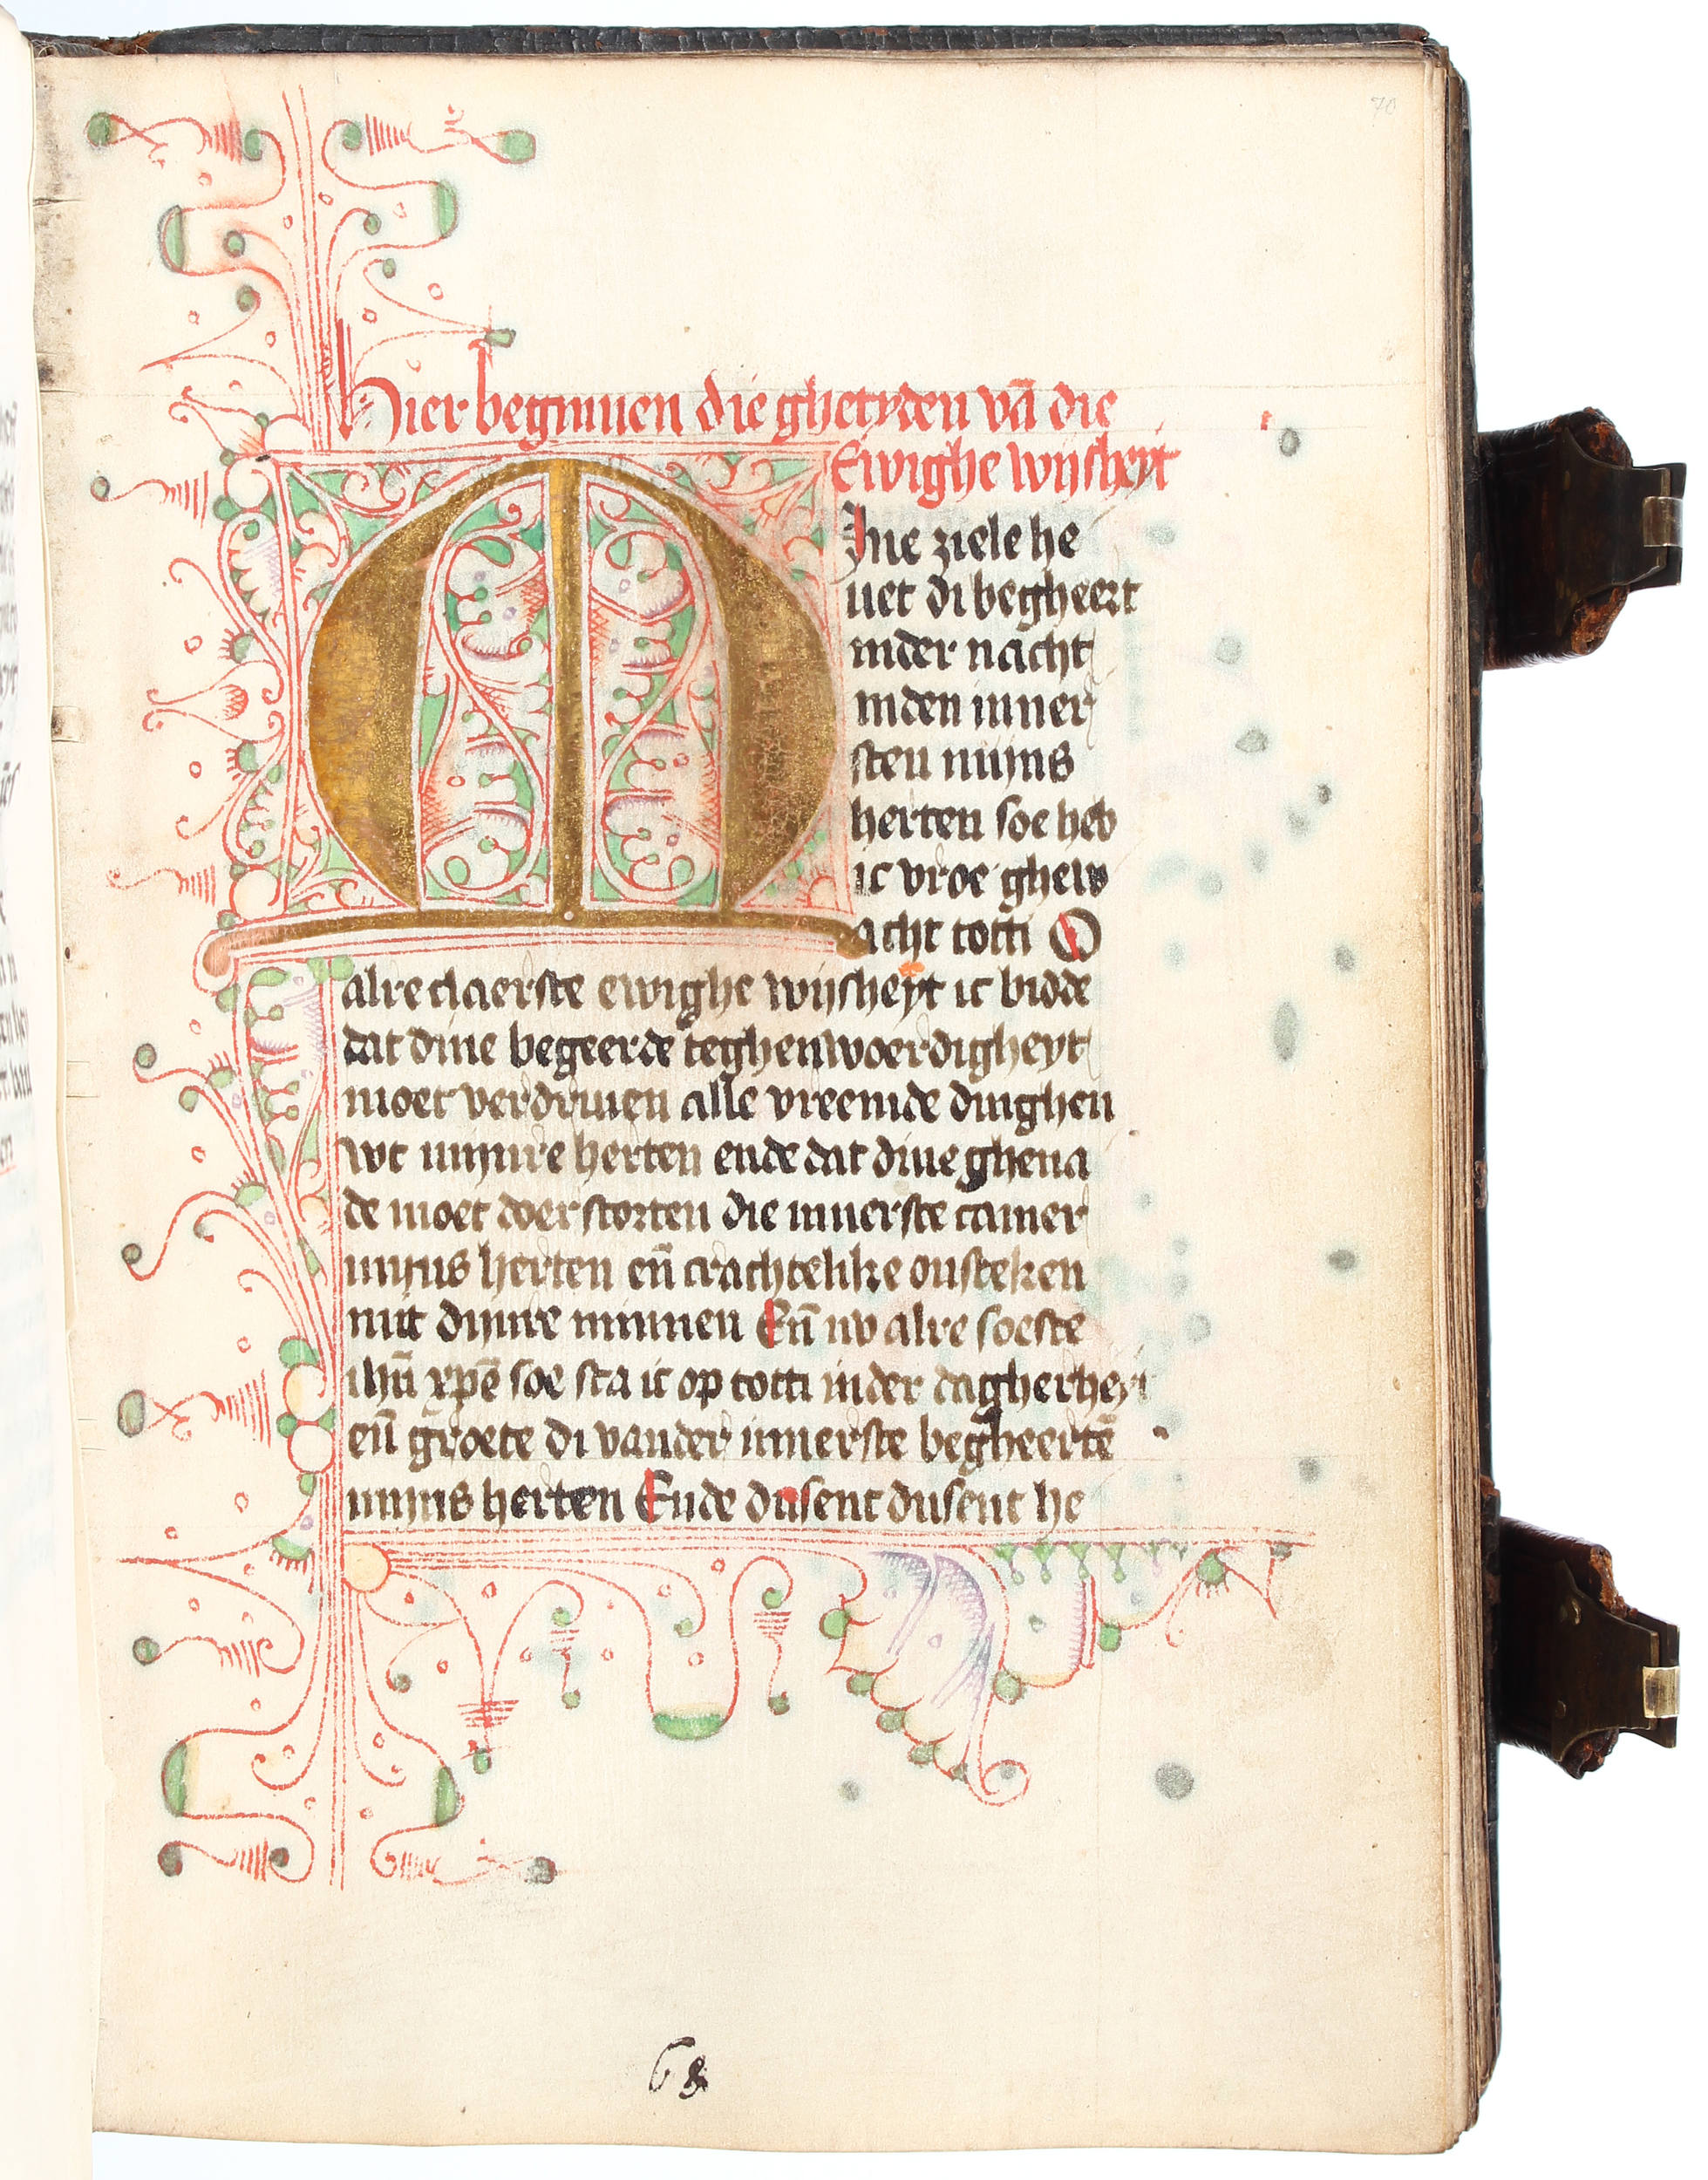 70
Hier beginnen die ghetyden vā die
Ewighe wijsheyt
Mine ziele he
uet di begheert
inder nacht
inden inner
sten mijns
herten soe heb
ic vroe ghew
acht totti O
alre claerste ewighe wijsheyt ic bidde
dat dine begeerde teghenwoerdigheyt
moet verdriuen alle vreemde dinghen
wt mijnre herten ende dat dine ghena
de moet doerstorten die innerste camer
mijns herten eñ crachtelike onsteken
mit dijnre minnen Eñ nv alre soeste
ihū xpē soe sta ic op totti inder dagherheyt
eñ groete di vander innerste begheertē
mijns herten Ende dusent dusent he
68